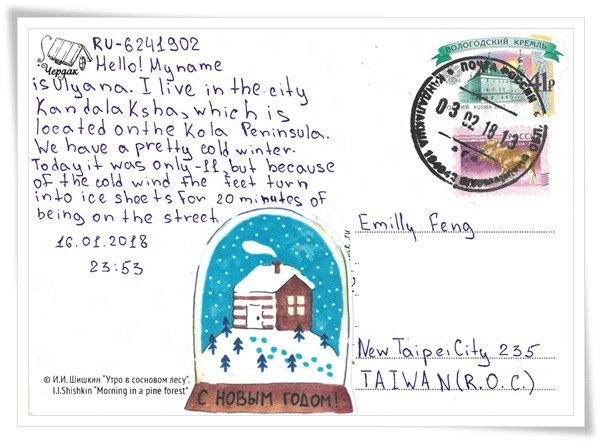 Чердак
RU-6241902
Hello! My name
is Ulyana. I live in the city
Kandalaksha, which is
located on the Kola Peninsula.
We have a pretty cold winter.
Today it was only -11, but because
of the cold wind the feet turn
into ice sheets for 20 minutes of
being on the street.
16.01.2018
23:53
© И.И. Шишкин "Утро в сосновом лесу".
I.I.Shishkin "Morning in a pine forest"
С НОВЫМ ГОДОМ!
ВОЛОГОДСКИЙ КРЕМЛЬ
41р
РОССИЯ RUSSIA
ПОЧТА РОССИИ
03 02 18
РОССИЯ
Emilly Feng
New Taipei City 235
TAIWAN (R.O.C.)